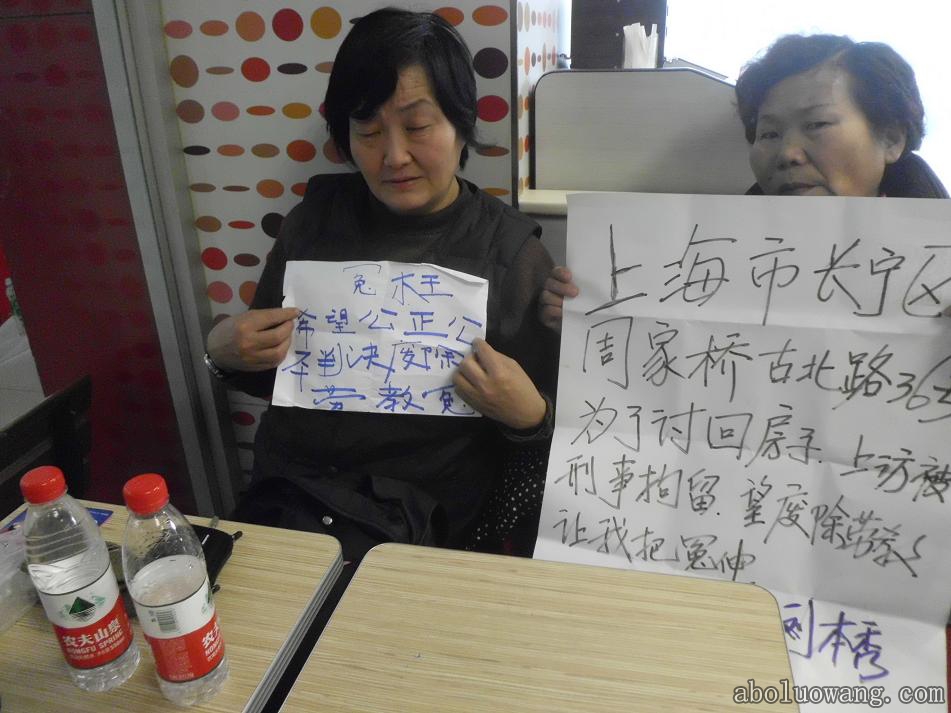 [冤 木王
希望公正公
平判决废除
劳教冤
上海市长宁区
周家桥古北路36
为了讨回房子.上访被
刑事拘留.望废除劳教
让我把冤伸
刘本秀
农夫山泉
NONGFU SPRING
农夫
NONGFU SPR
aboluowang.com